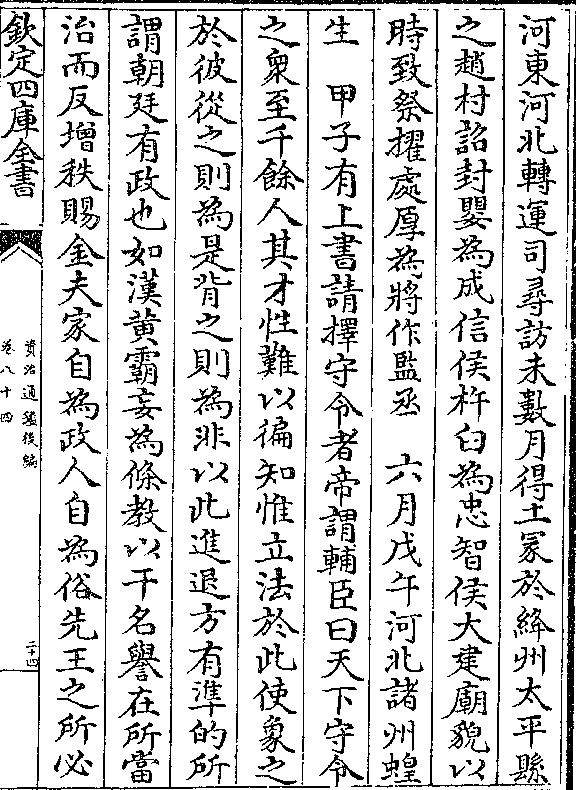 河東河北轉運司尋訪未數月得土冢於絳州太平縣
之趙村詔封嬰為成信侯杵臼為忠智侯大建廟貌以
時致祭擢處厚為將作監丞　六月戊午河北諸州蝗
生　甲子有上書請擇守令者帝謂輔臣曰天下守令
之衆至千餘人其才性難以徧知惟立法於此使象之
於彼從之則為是背之則為非以此進退方有準的所
謂朝廷有政也如漢黄霸妄為條教以干名譽在所當
治而反增秩賜金夫家自為政人自為俗先王之所必
欽定四庫全書
資治通鑑後編
卷八十四
二十四